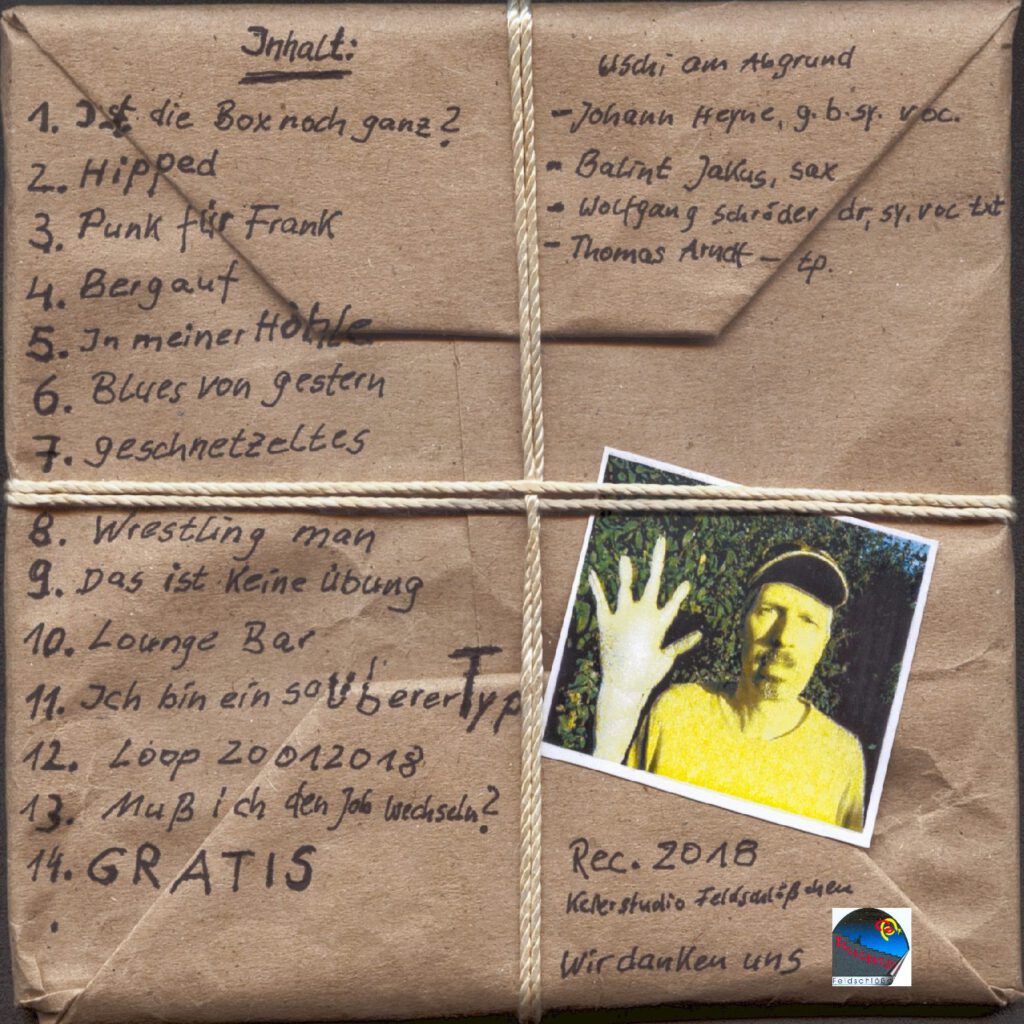 Inhalt:
1. Ist die Box noch ganz?
2. Hipped
3. Punk für Frank
4. Bergauf
5. In meiner Höhle
6. Blues von gestern
7. geschnetzeltes
8. Wrestling man
9. Das ist Keine übung
10. Lounge Bar
11. Ich bin ein saubererTyp
12. Loop 20012018
13. Muß ich den Job wechseln?
14. GRATIS
Uschi am Abgrund
- Johann Heyne, g. b. sy. voc.
- Balint Jakus, sax
- Wolfgang Schröder dr, sy, voc txt
- Thomas Arndt - tp.
Rec. 2018
Kellerstudio Feldschlößchen
Wir danken uns